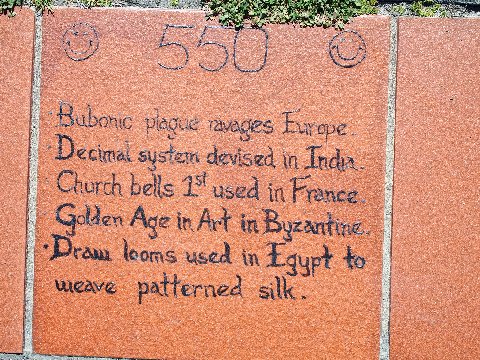 550
Bubonic plague ravages Europe.
Decimal system devised in India.
Church bells 1st used in France.
Golden Age in Art in Byzantine.
• Draw looms used in Egypt to
weave patterned silk.